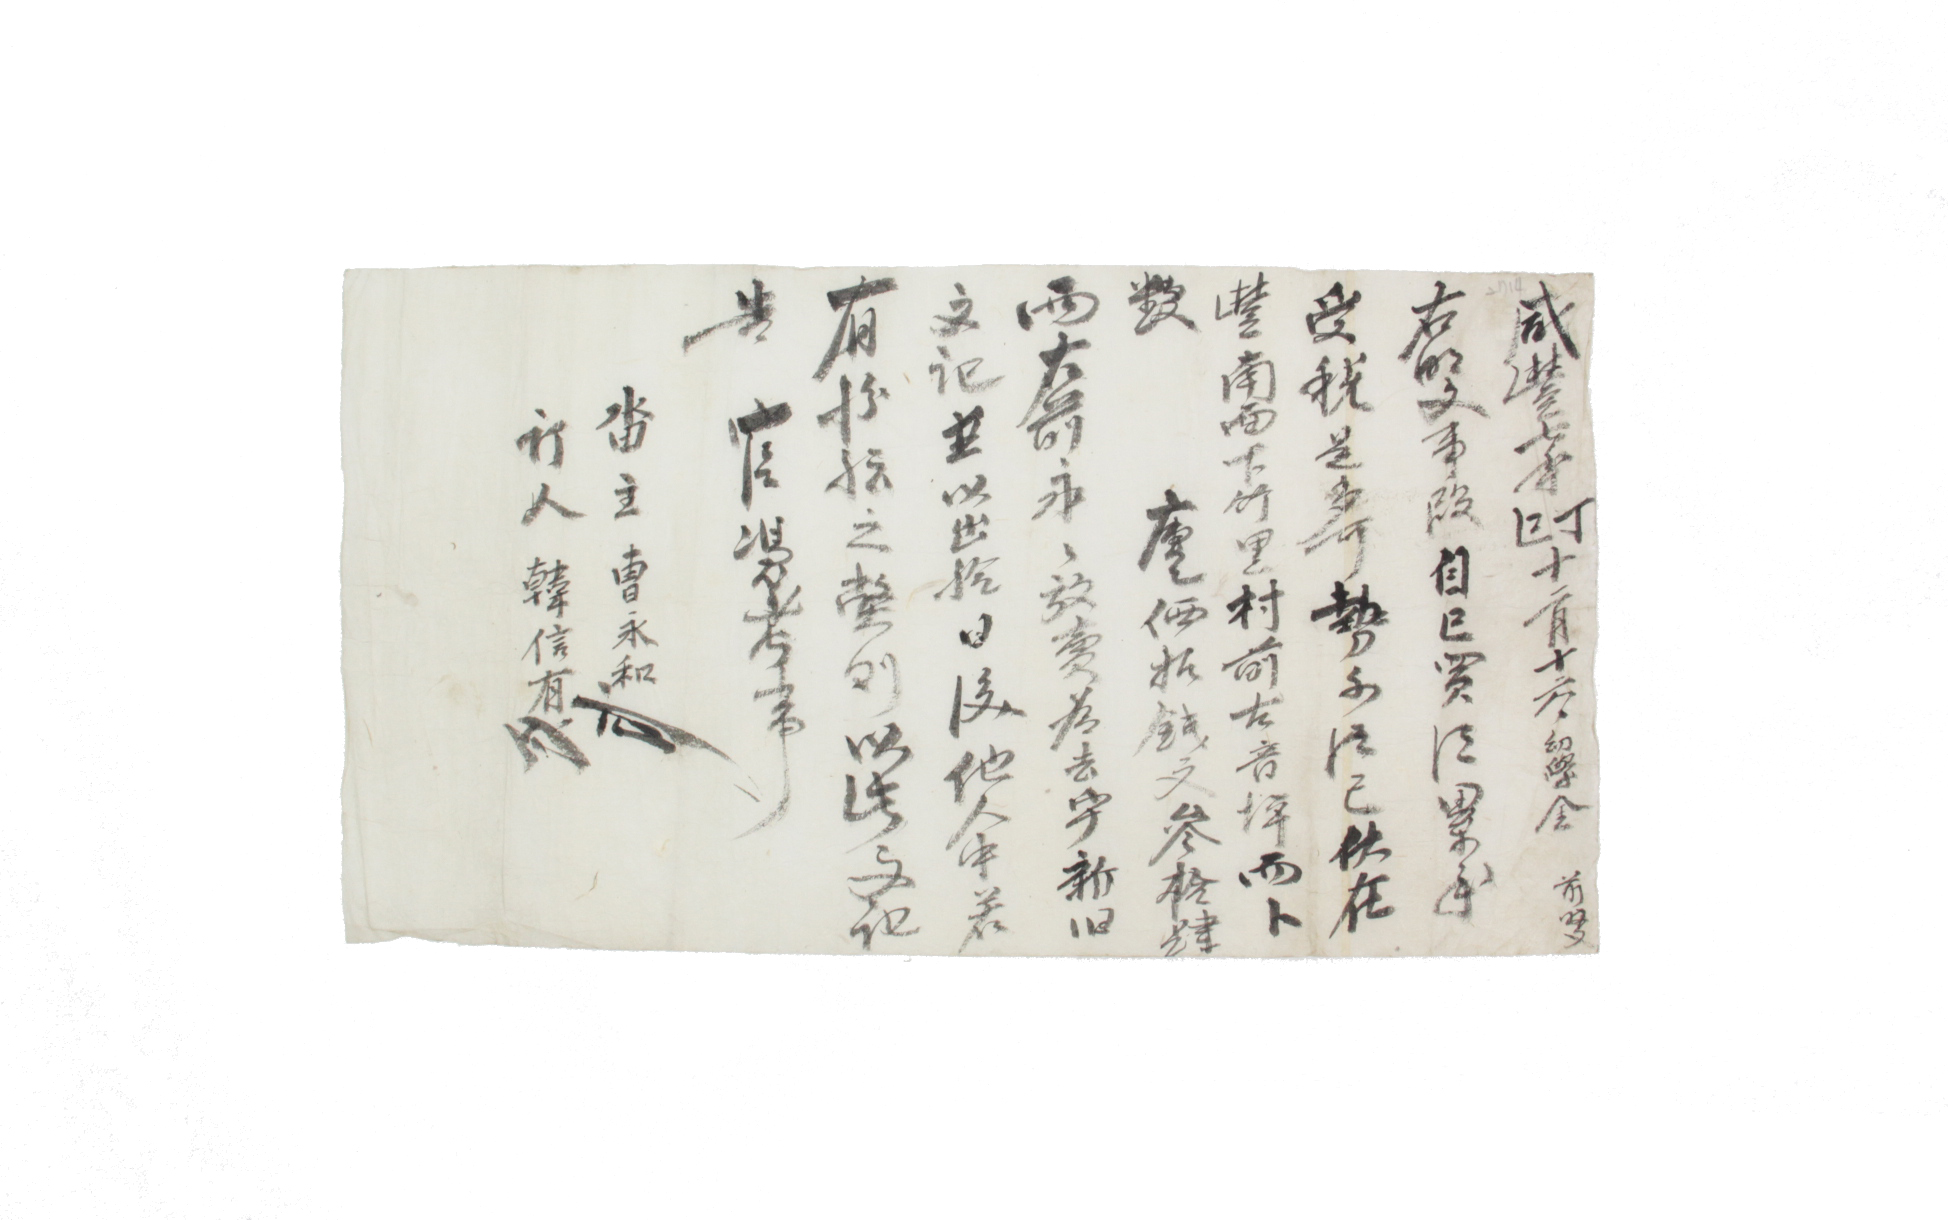 咸豐七年丁巳十二月十六日幼學金 前明文
右明文事段自己買得累年
受稅是如可勢不得已伏在
豐南面下竹里村前古音坪而卜
數 庫価折錢文參拾肆
兩右前永〻放賣爲去乎新旧
文記並以出給日後他人中若
有扮紜之獘則以此文記
告 官憑考事
畓主曺永和
訂人韓信有